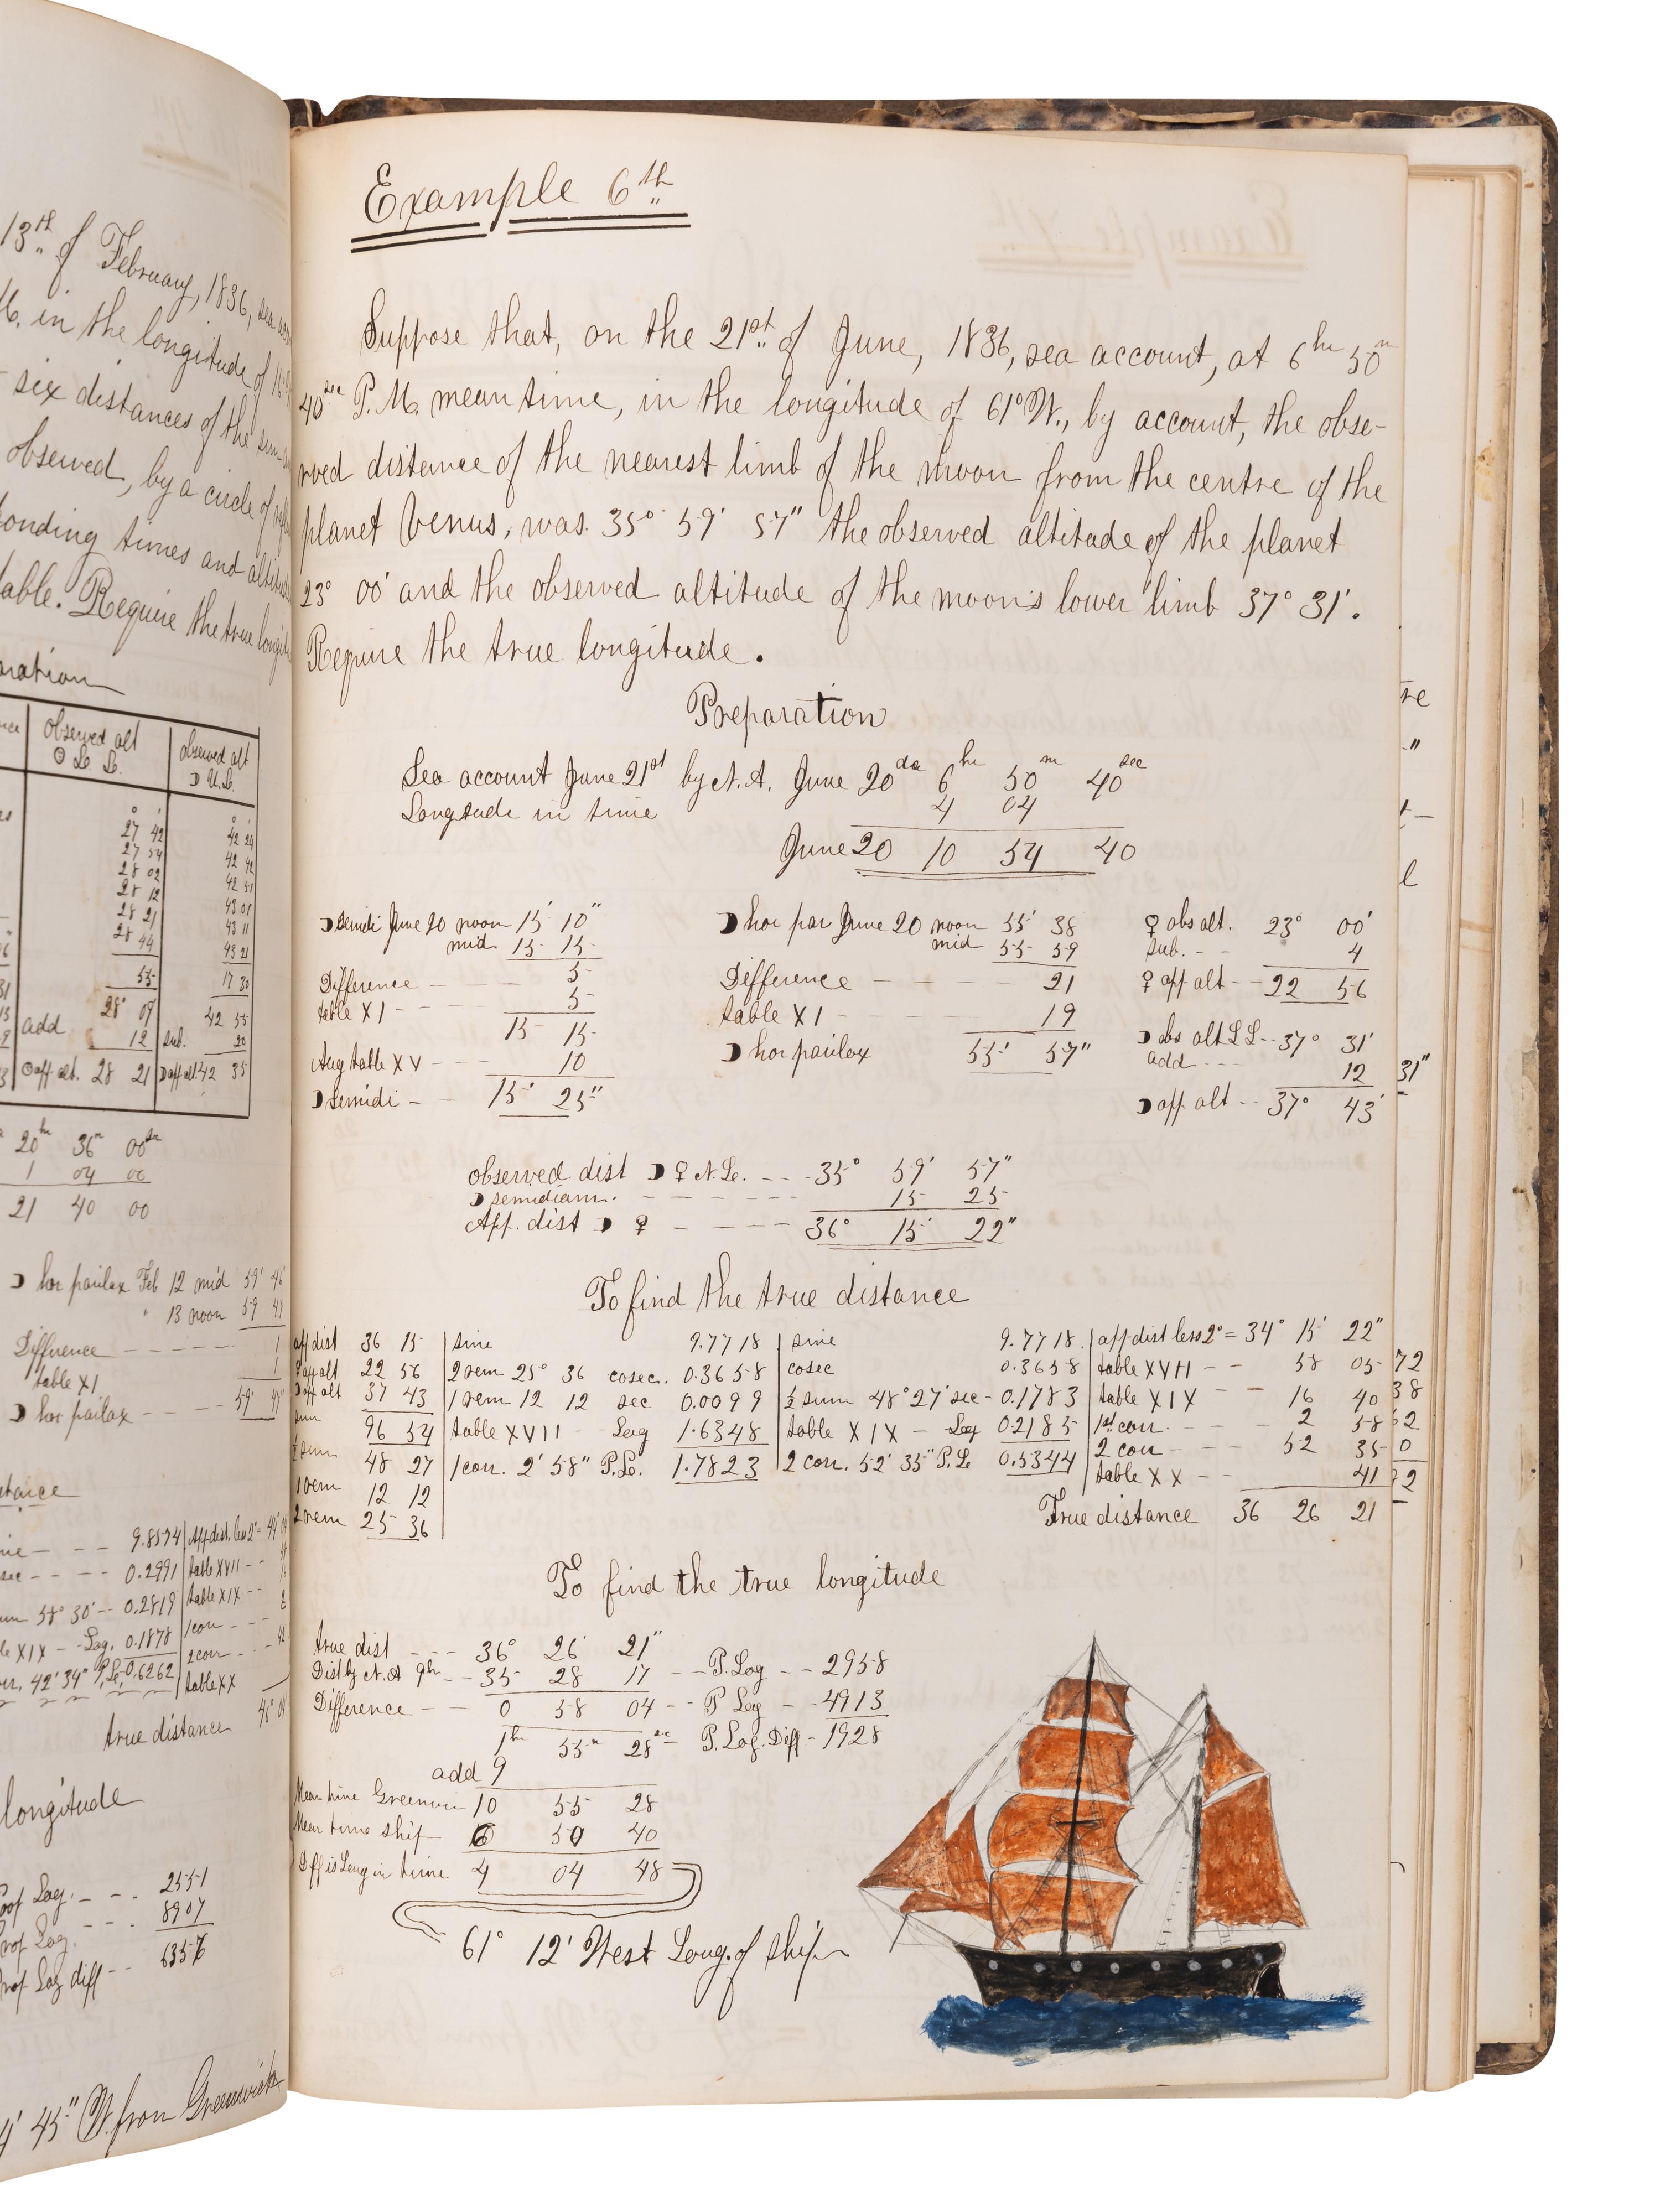 13th of February, 1836, sea
M. in the longitude of
six distances of the sun
observed, by a circle of
onding times and
table. Require the true
Observed alt
☉ L. L.
observed alt
☽ U.L.
27 42
42 24
27 54
42 42
28 02
42 51
28 12
43 01
28 21
43 11
28 44
43 21
55
17 30
28° 09
42 55
add
12
sub.
20
☉ app alt. 28 21
☽ app alt 42 35
20hr 36m 00sec
1 04 00
21 40 00
☽ hor parlax Feb 12 mid 59'
13 noon 59
Difference
table XI
☽ hor parlax
9.8574
app dist. less 2° =
0.2991
table XVII
58° 30' 0.2819
table XIX
XIX Log. 0.1878
1 corr
42' 34" P.L. 0.6262
2 corr
table XX
true distance
longitude
Log. 2551
Log. 8907
Log diff 6356
45" W. from Greenwich
Example 6th
Suppose that, on the 21st of June, 1836, sea account, at 6hr 50m
40sec P.M. mean time, in the longitude of 61° W., by account, the obse-
rved distance of the nearest limb of the moon from the centre of the
planet Venus, was. 35° 59' 57" the observed altitude of the planet
23° 00' and the observed altitude of the moon's lower limb 37° 31'.
Require the true longitude.
Preparation
Sea account June 21st by N.A. June 20da 6hr 50m 40sec
Longtude in time 4 04
June 20 10 54 40
☽ semidi June 20 noon 15' 10"
mid 15 15
Difference 5
table XI 5
15 15
Aug table XV 10
☽ semidi 15' 25"
☽ hor par June 20 noon 55' 38
mid 55 59
Difference 21
table XI 19
☽ hor parlax 55' 57"
♀ obs alt. 23° 00'
sub. 4
♀ app alt 22 56
☽ obs alt L L 37° 31'
add 12
☽ app alt 37° 43'
observed dist ☽ ♀ N. L. 35° 59' 57"
☽ semidiam. 15 25
App. dist ☽ ♀ 36° 15' 22"
To find the true distance
app dist 36 15
♀ app alt 22 56
☽ app alt 37 43
sum 96 54
½ sum 48 27
1 rem 12 12
2 rem 25 36
sine 9.7718
2 rem 25° 36 cosec. 0.3658
1 rem 12 12 sec 0.0099
table XVII Log 1.6348
1 corr. 2' 58" P.L. 1.7823
sine 9.7718
cosec 0.3658
½ sum 48° 27' sec 0.1783
table XIX Log 0.2185
2 corr. 52' 35" P.L 0.5344
app dist less 2° = 34° 15' 22"
table XVII 58 05
table XIX 16 40
1st corr. 2 58
2 corr 52 35
table XX 41
True distance 36 26 21
To find the true longitude
true dist 36° 26' 21"
Dist by N. A 9hr 35 28 17 P. Log 2958
Difference 0 58 04 P Log 4913
1hr 55m 28sec P. Log. Diff 1928
add 9
Mean time Greenwi 10 55 28
Mean time ship 6 50 40
Diff is Long in time 4 04 48
61° 12' West Long. of ship
re
"
l
31"
72
38
62
0
2